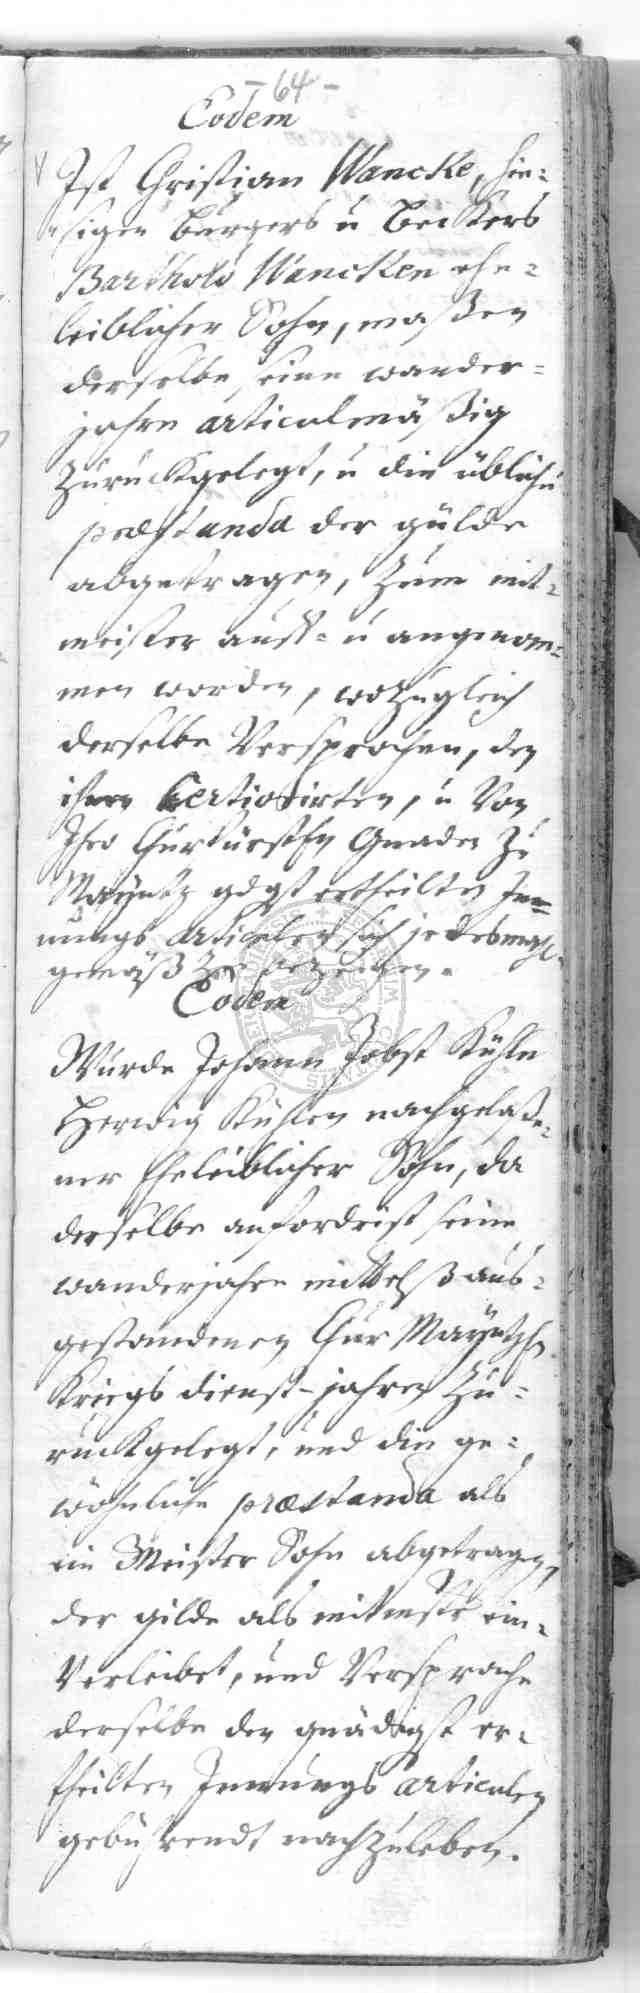 - 64 -
Eodem
Ist Christian Wancke, hie-
sigen burgers u beckers
Barthold Wancken ehe-
leiblicher Sohn, maßen
derselbe seine wander-
jahre articulmäßig
Zuruckgelegt, u die übliche
præstanda der gülde
abgetragen, Zum mit-
meister auff- u angenom-
men worden, wozugleich
derselbe Versprochen, den
ihnen u Von
Ihro Churfürstln Gnaden Zu
Mayntz gdgst ertheilten In-
nungs articulen sich jedesmahl
gemäß Zu bezeigen.
Eodem
Wurde Johann Jobst Kühle
Herwig Kühlen nachgelaße-
ner Eheleiblicher Sohn, da
derselbe anfordrist seine
wanderjahre mittelß aus-
gestandenen Chur Mayntzl
Kriegs dienst-jahren Zu-
ruckgelegt, und die ge-
wöhnliche præstanda als
ein Meister Sohn abgetragen,
der gilde als mitmstr ein-
Verleibet, und Versprache
derselbe den gnädigst er-
theilten Innungs articulen
gebührendt nachzuleben.